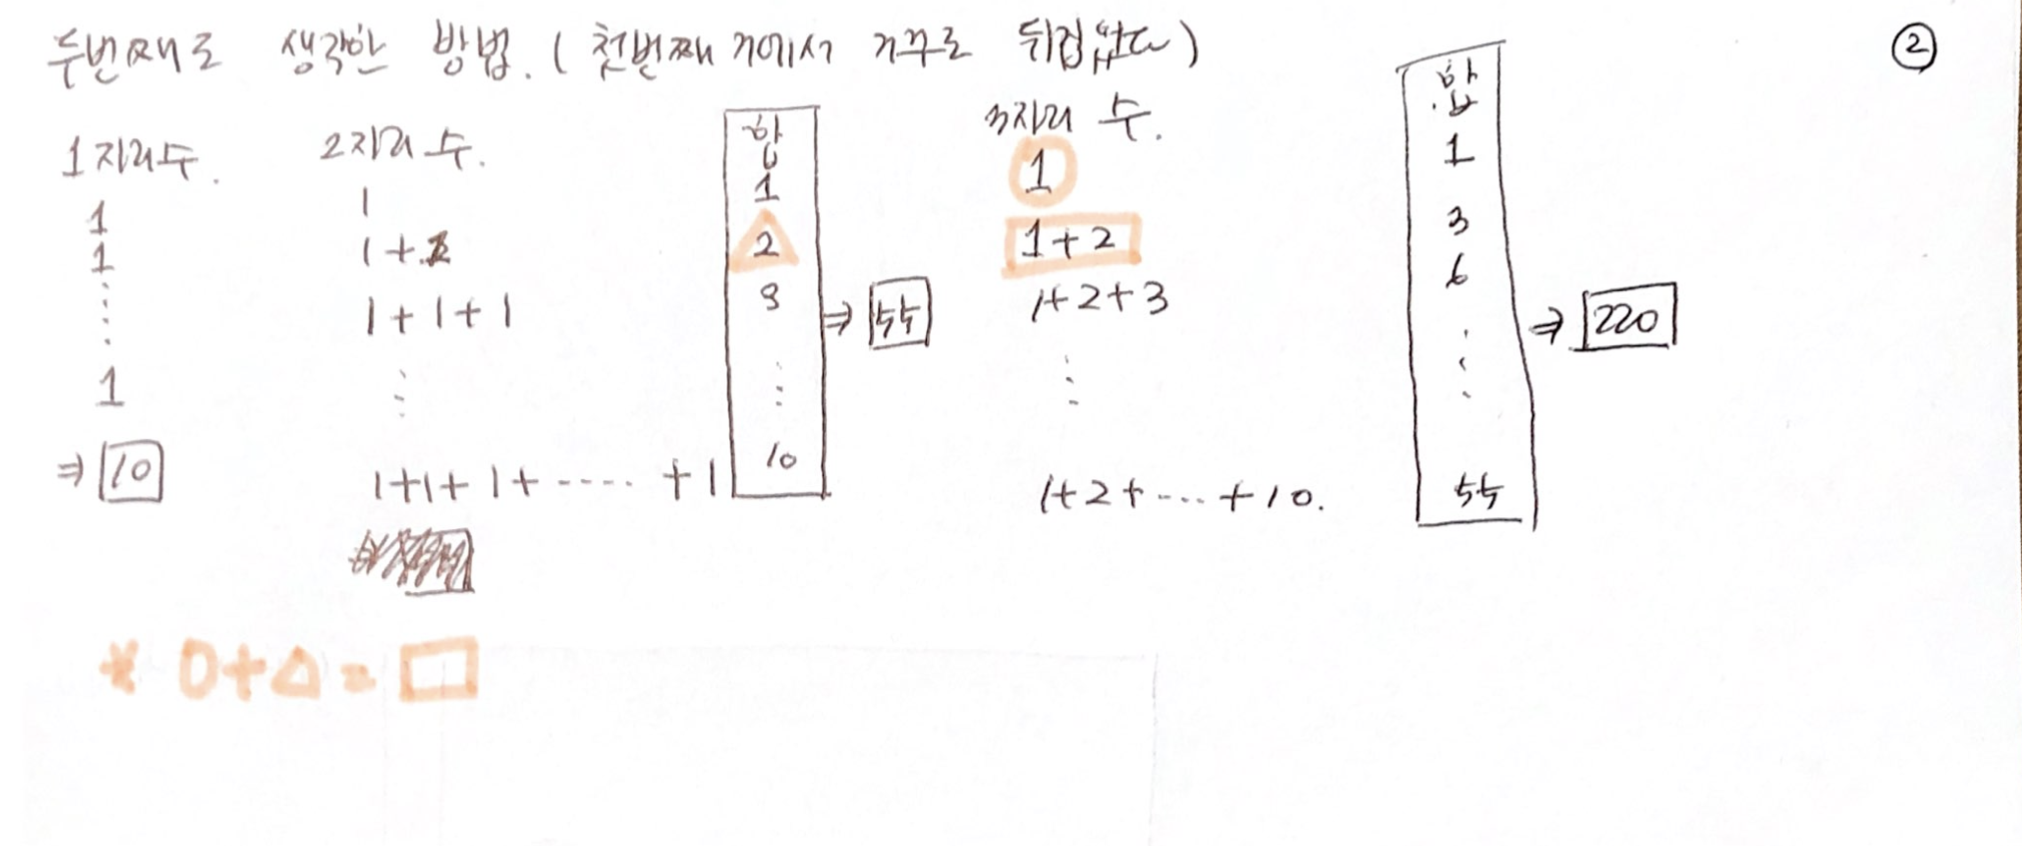 두번째로 생각한 방법. (첫번째 거에서 거꾸로 뒤집었다)
②
1자리수.
1
1
⋮
1
⇒ 10
2자리 수.
1
1+
1+1+1
⋮
1+1+1+ ····· +1
합
1
2
3
⋮
10
⇒ 55
3자리 수.
1
1+2
1+2+3
⋮
1+2+ ···· +10.
합
1
3
6
⋮
55
⇒ 220
* O+△=□